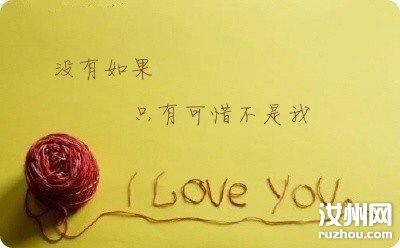 没有如果
只有可惜不是我
I LOVE YOU.
汝州网
ruzhou.com